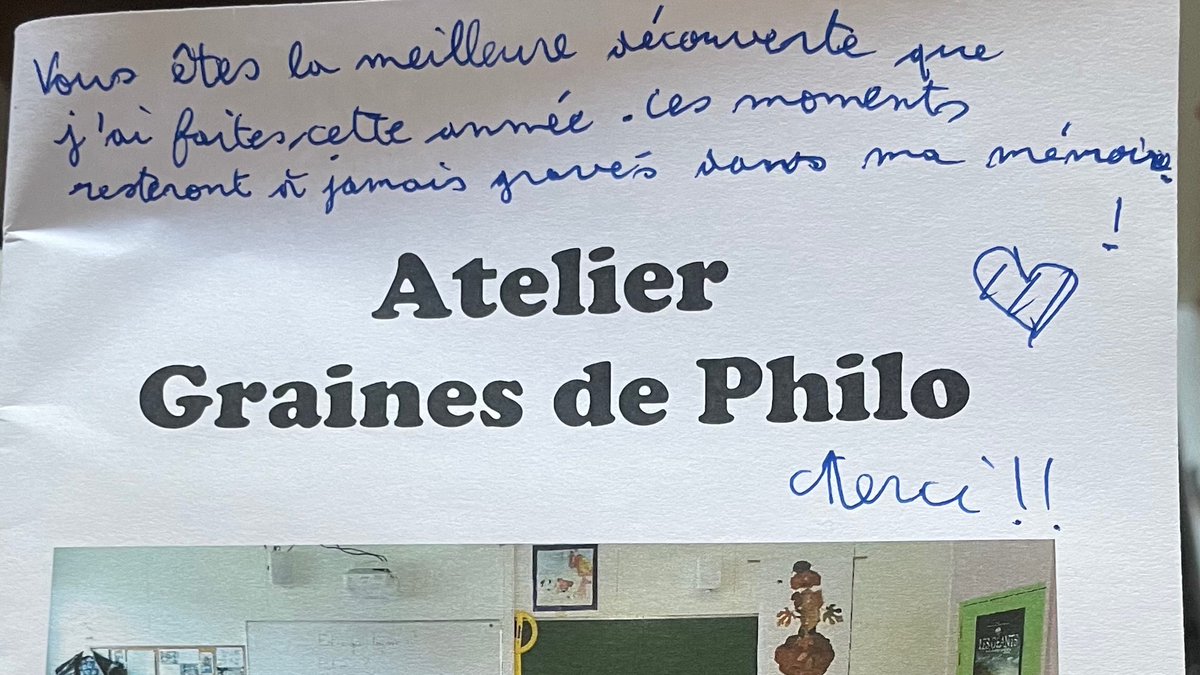 Vous êtes la meilleure découverte que
j'ai faites cette année. Ces moments
resteront à jamais gravés dans ma mémoire
!
Atelier
Graines de Philo
Merci !!
LES GÉANTS